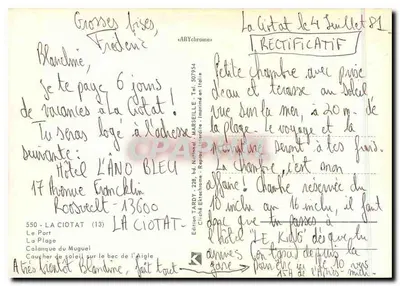 Grosses bises,
Frédéric
Blandine,
Je te paye 6 jours
de vacances à La Ciotat !
Tu seras logé à l'adresse
suivante :
Hôtel L'ANO BLEU
17 Avenue Francklin
Roosvelt - 13600
LA CIOTAT
550 - LA CIOTAT (13)
Le Port
La Plage
Calanque du Muguel
Coucher de soleil sur le bec de l'Aigle
A très bientôt Blandine, fait tout
«ARYchrome»
Edition TARDY, 228, bd. MARSEILLE - Tél. 507954
Cliché Ektachrome - Imprimé en Italie
K
La Ciotat le 4 Juillet 81
RECTIFICATIF
Petite chambre avec prise
d'eau et terrasse au soleil
vue sur la mer, à 20 m. de
la plage. Le voyage et la
seront à tes frais.
La chambre, c'est mon
affaire ! Chambre réservée du
10 inclu au 16 inclu, il faut
donc que tu passes à
l'hôtel dès que tu
arrives (en gare) depuis la
gare